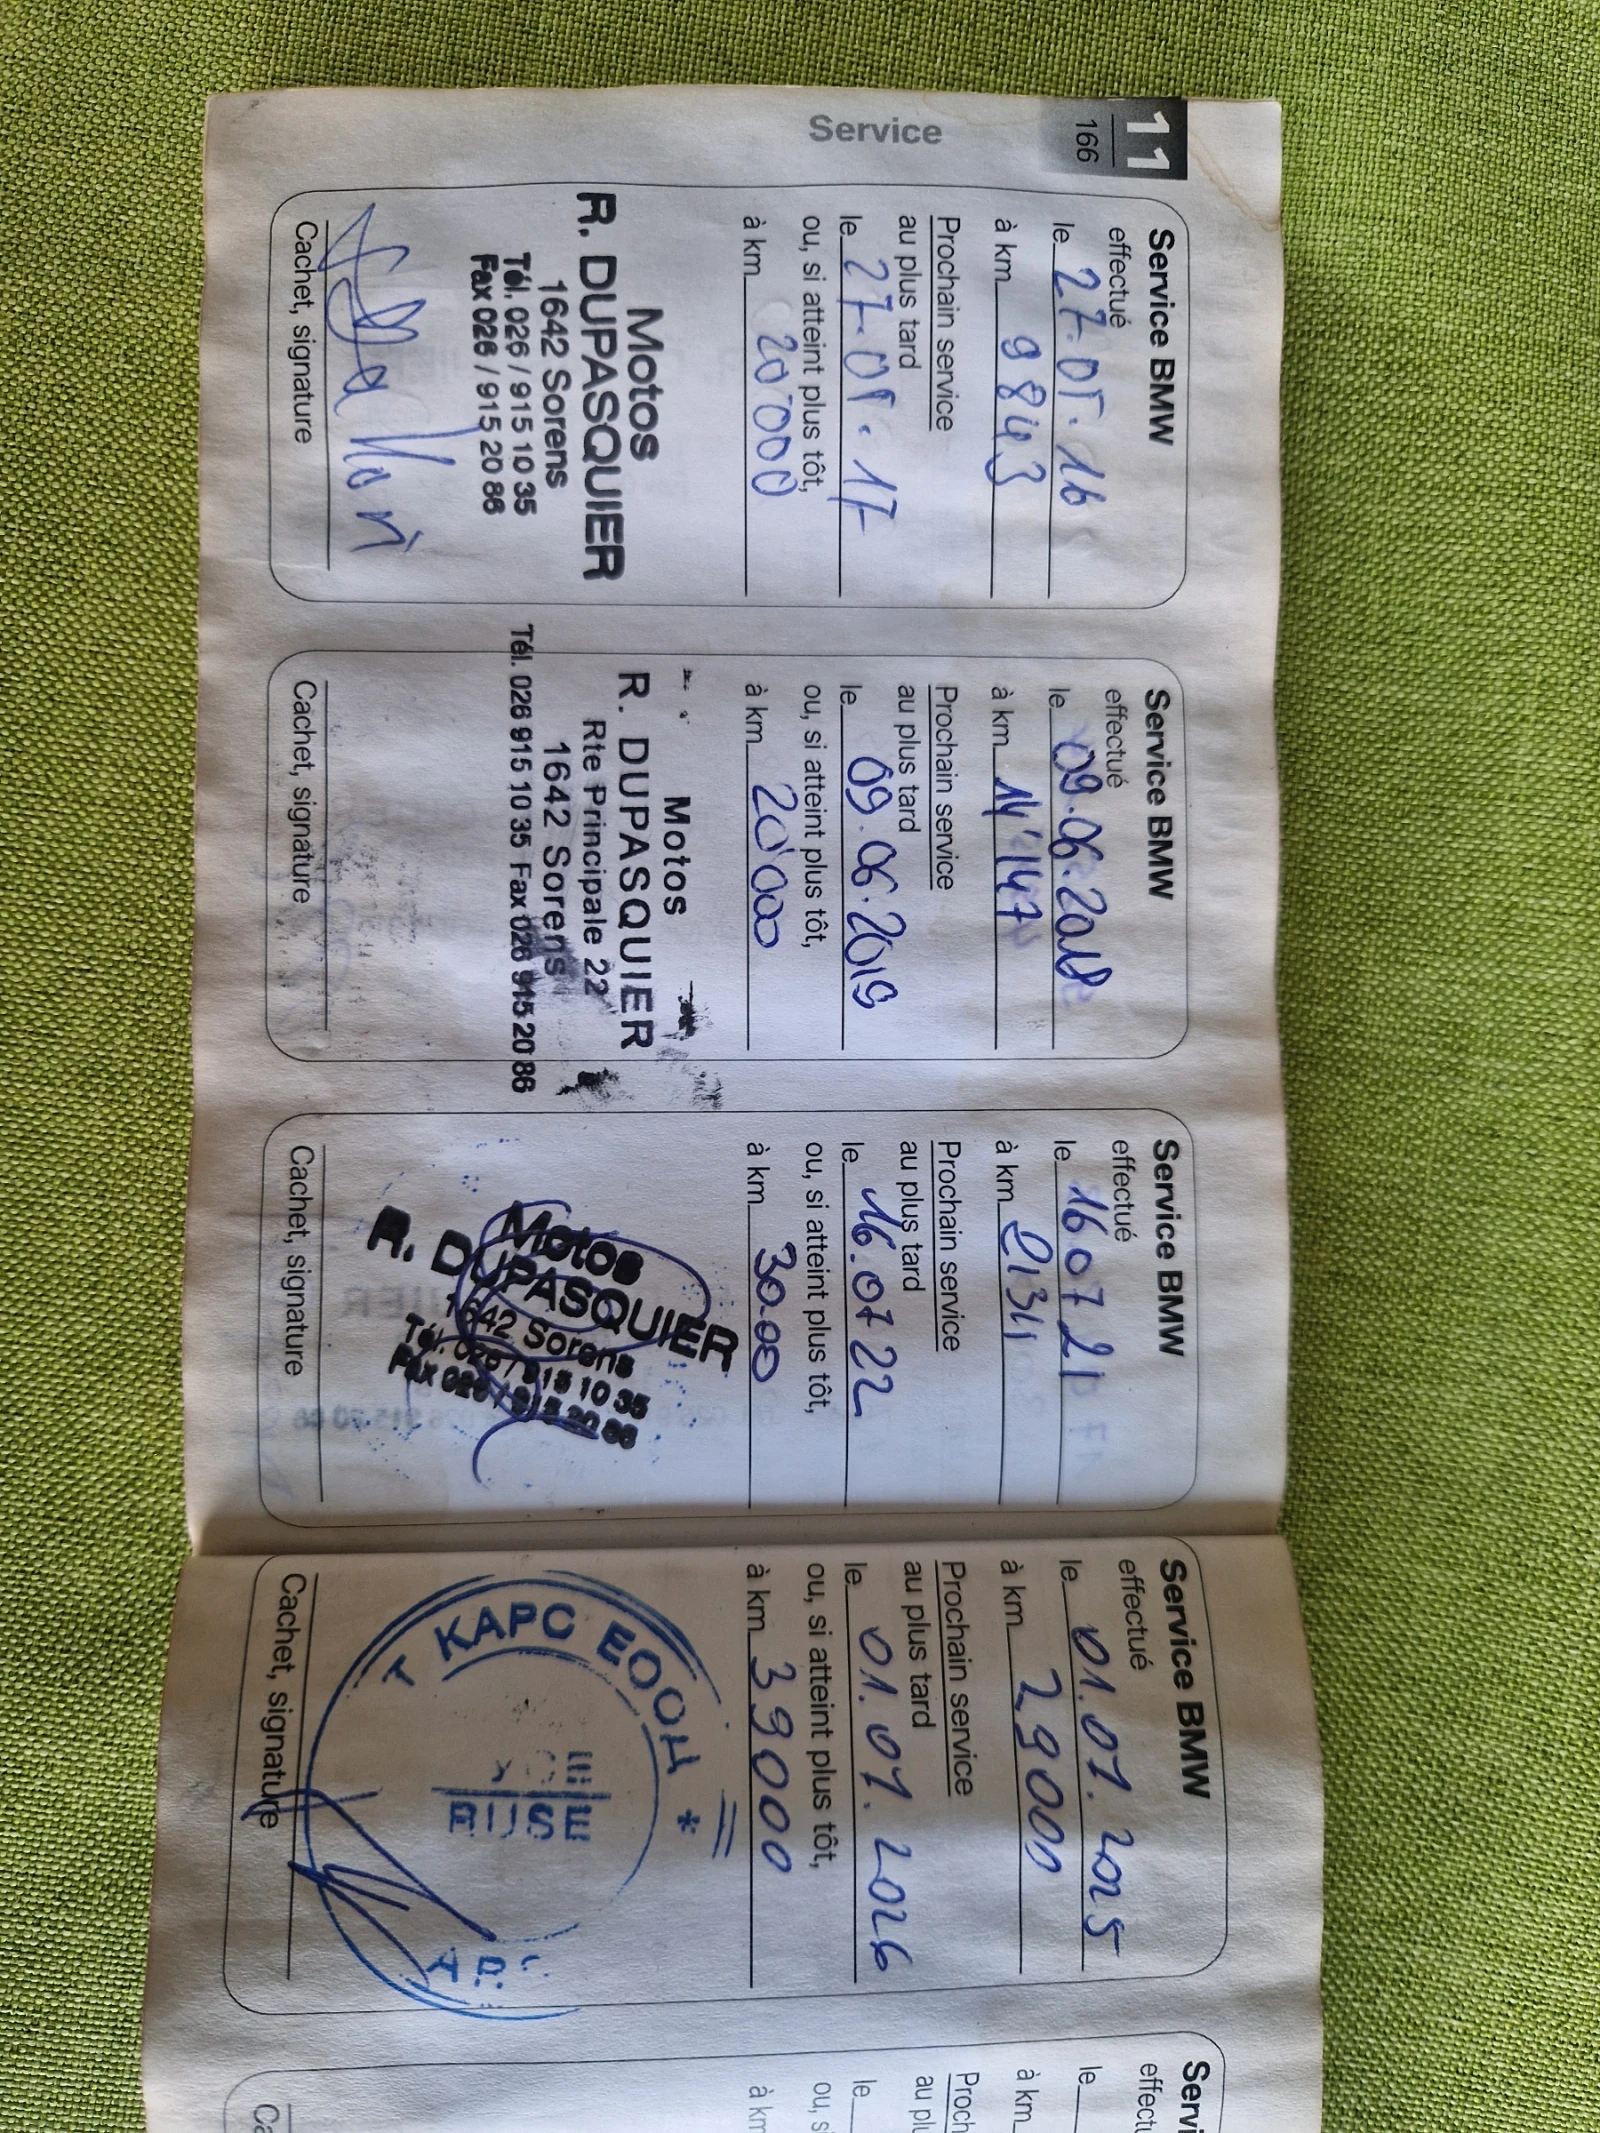 11
166
Service
Service BMW
effectué
le 27.05.16
à km 9843
Prochain service
au plus tard
le 27.05.17
ou, si atteint plus tôt,
à km 20'000
Motos
R. DUPASQUIER
1642 Sorens
Tél. 026 / 915 10 35
Fax 026 / 915 20 86
Cachet, signature
Service BMW
effectué
le 09.06.2018
à km 14'147
Prochain service
au plus tard
le 09.06.2019
ou, si atteint plus tôt,
à km 20'000
Motos
R. DUPASQUIER
Rte Principale 22
1642 Sorens
Tél. 026 915 10 35 Fax 026 915 20 86
Cachet, signature
Service BMW
effectué
le 16 07 21
à km 21341
Prochain service
au plus tard
le 16.07 22
ou, si atteint plus tôt,
à km 30.00
Motos
R. DUPASQUIER
1642 Sorens
Tél. 026 / 915 10 35
Fax 026 / 915 20 86
Cachet, signature
Service BMW
effectué
le 01.07.2025
à km 29000
Prochain service
au plus tard
le 01.07.2026
ou, si atteint plus tôt,
à km 39000
КАРС ЕООД *
Cachet, signature
Servi
effectu
le
à km
Proch
au plu
le
ou, s
à km
Ca